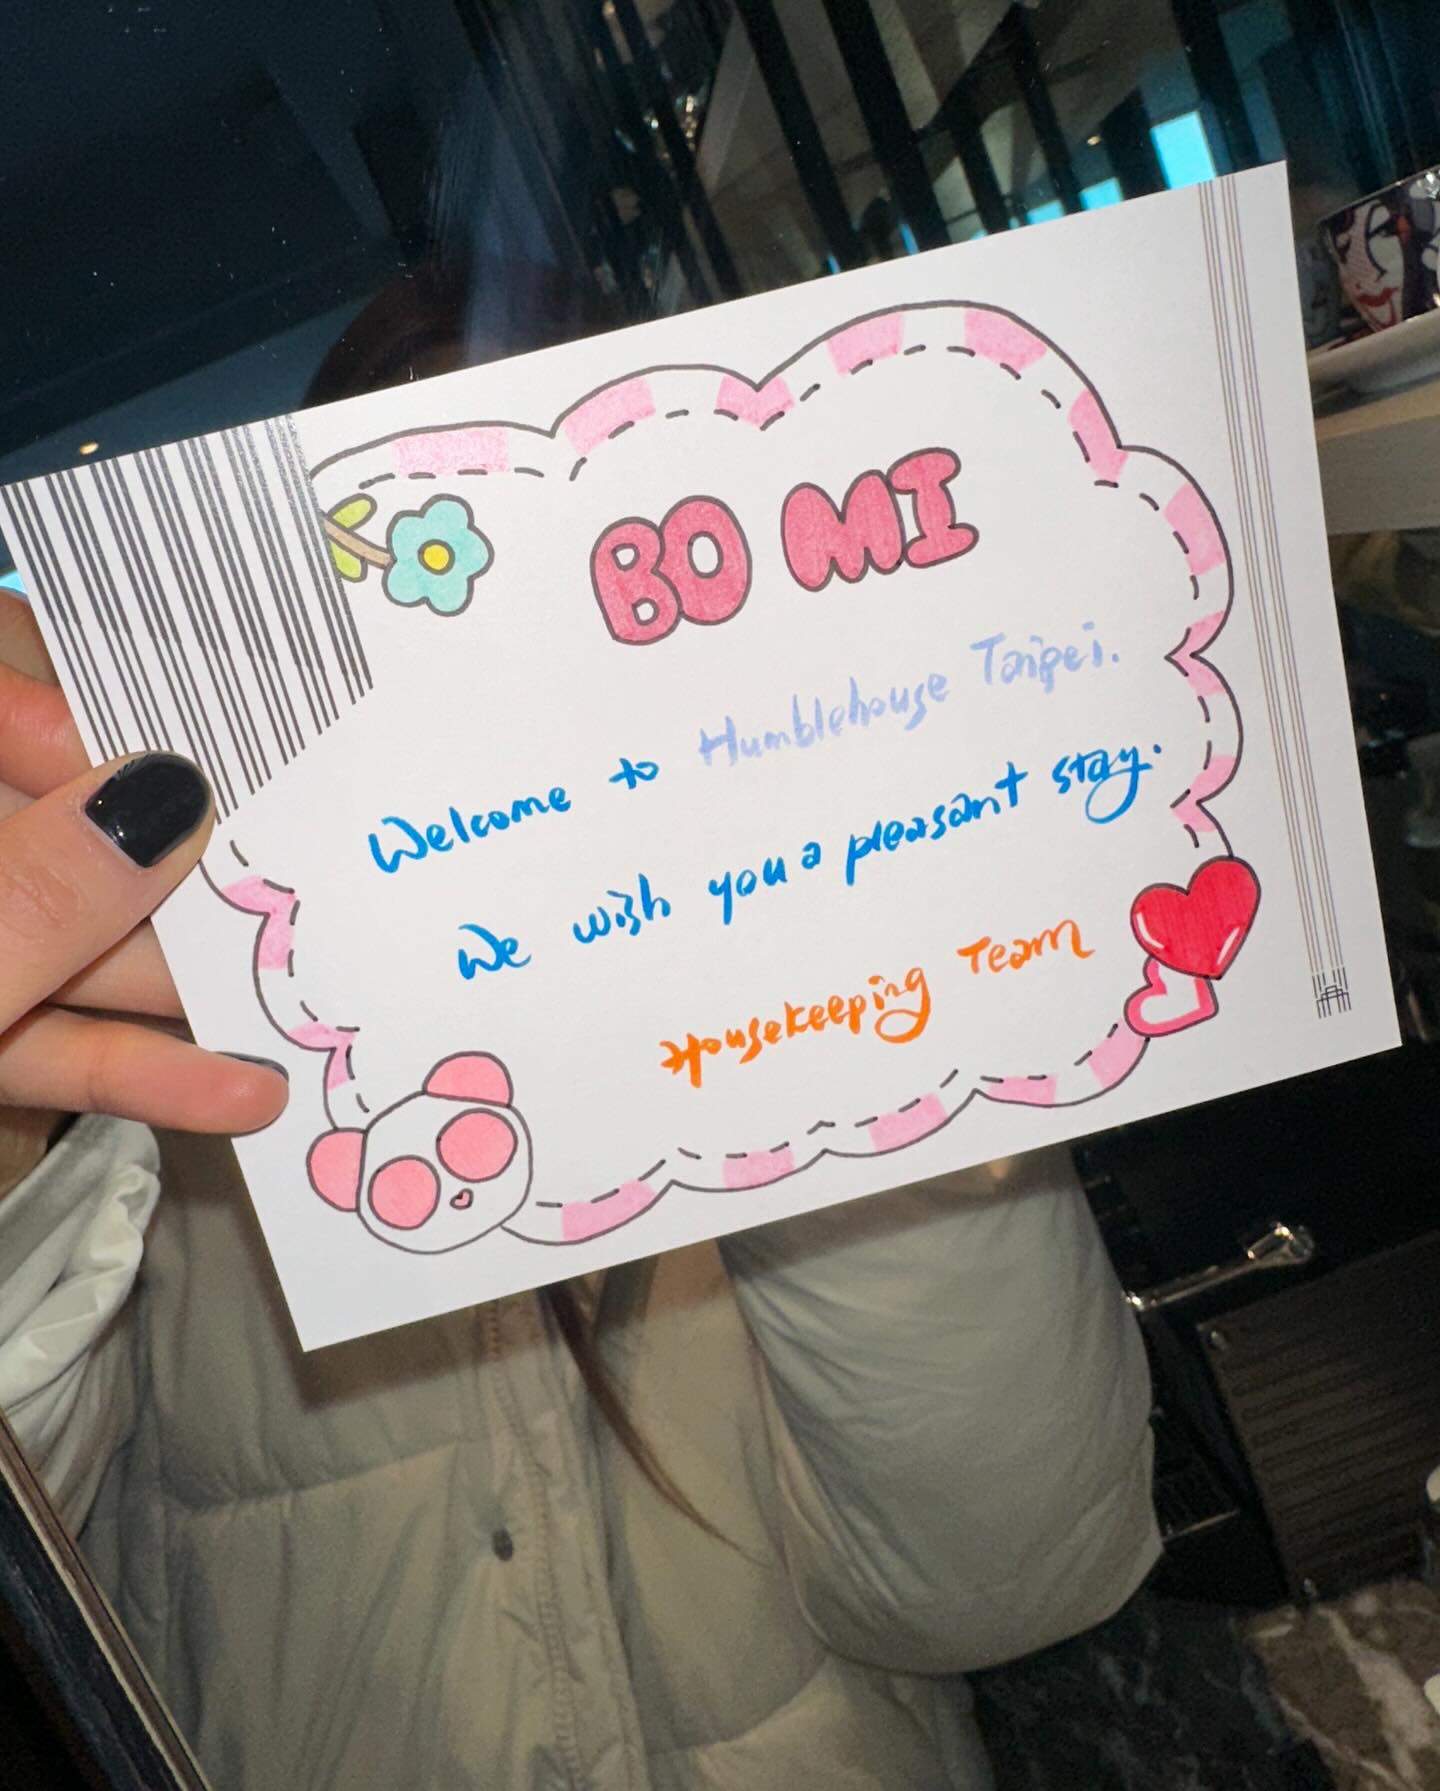 BO MI
Welcome to Humblehouse Taipei.
We wish you a pleasant stay.
Housekeeping Team